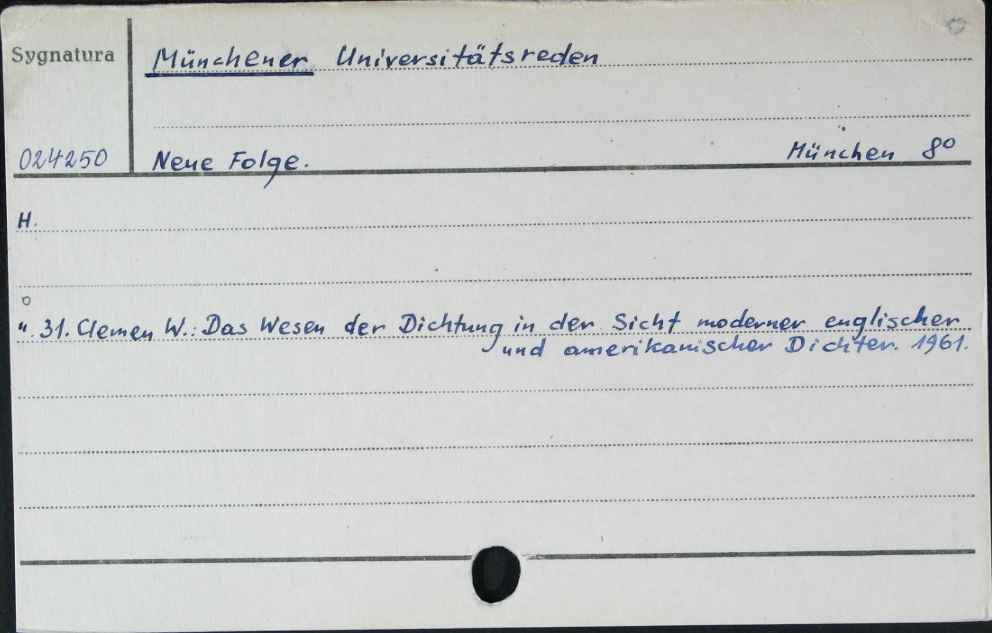 Sygnatura
Münchener Universitätsreden
024250
Neue Folge. München 8°
H.
". 31. Clemen W.: Das Wesen der Dichtung in der Sicht moderner englischer
und amerikanischer Dichter. 1961.